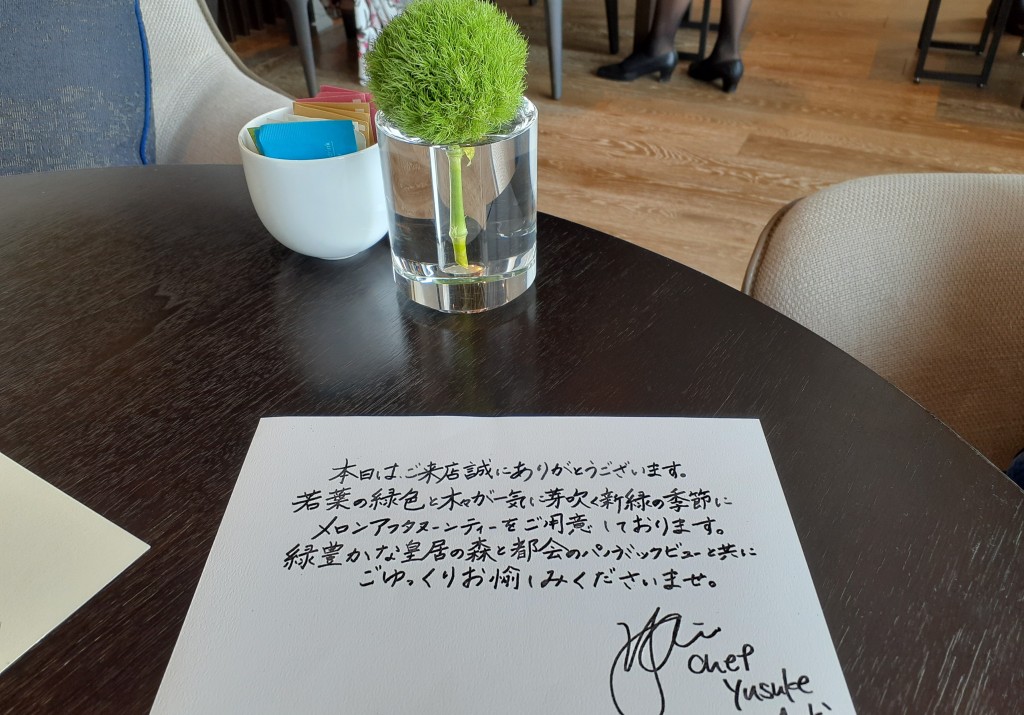 本日は、ご来店誠にありがとうございます。
若葉の緑色と木々が一気に芽吹く新緑の季節に
メロンアフタヌーンティーをご用意しております。
緑豊かな皇居の森と都会のパノラミックビューと共に
ごゆっくりお愉しみくださいませ。
Chef
Yusuke